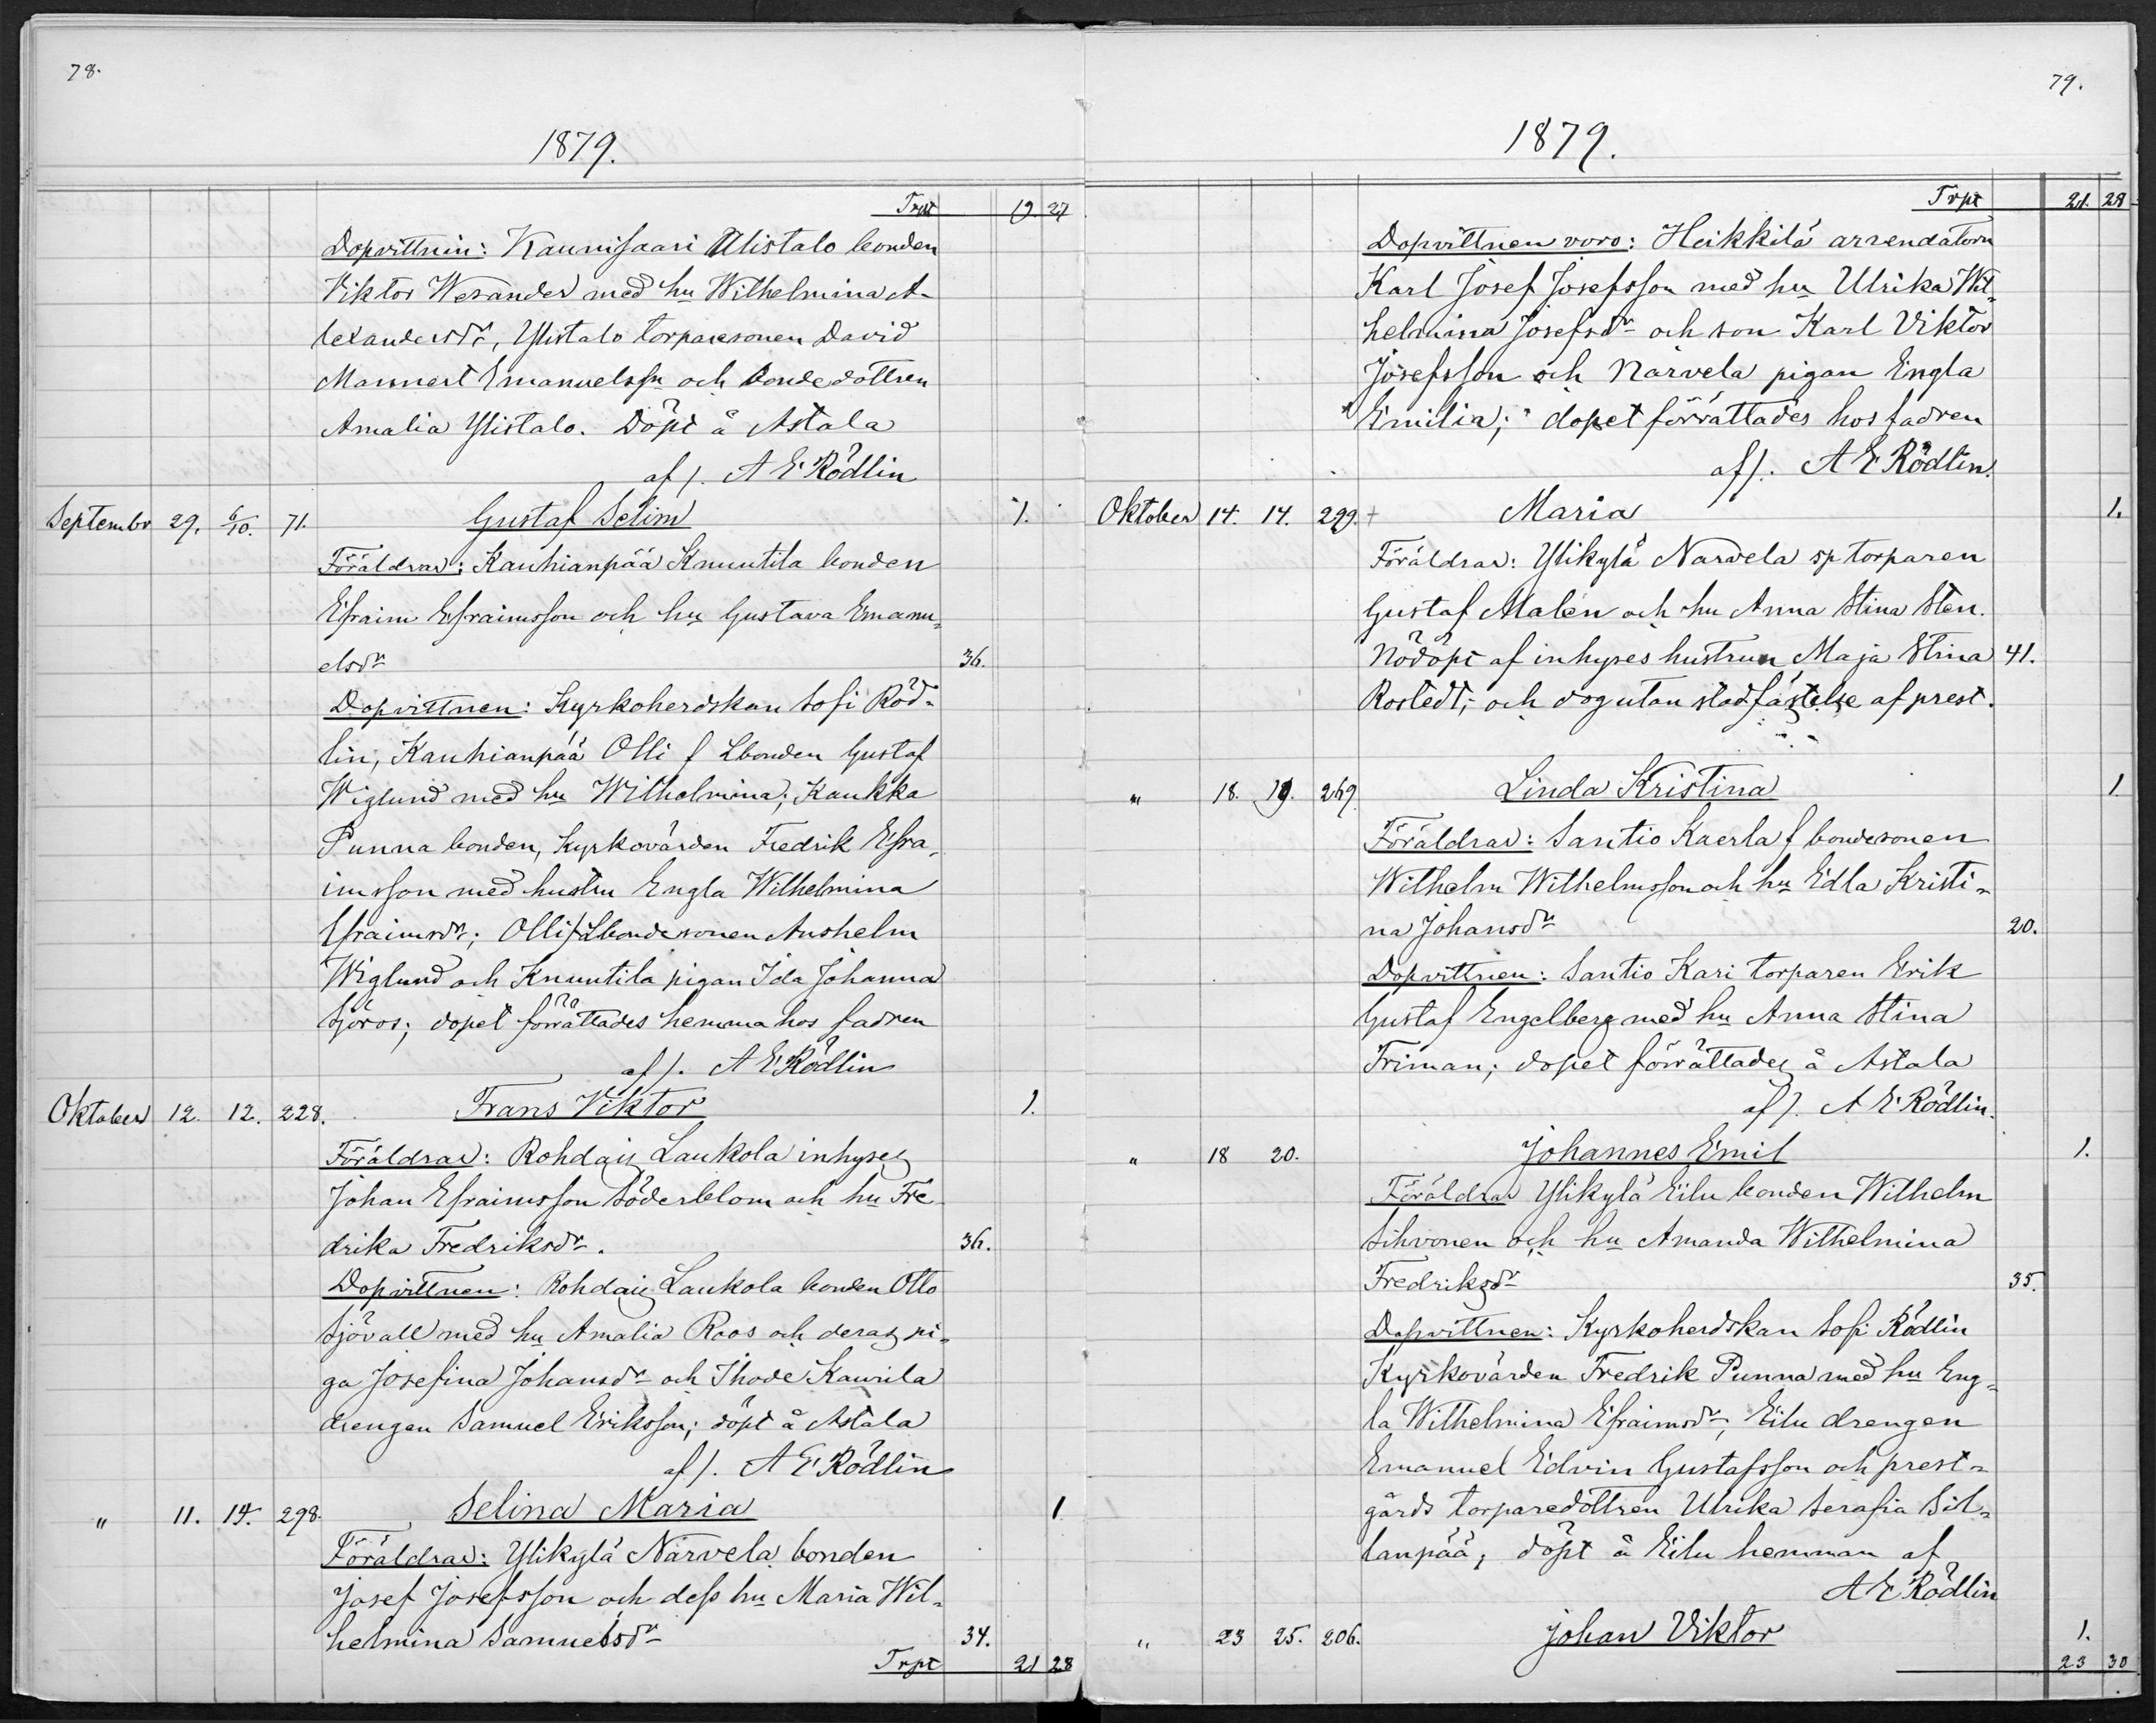 78.
1879.
Trpt 19. 27
Dopvittnin: Kaunisaari Ulistalo bonden
Viktor Wesander med hu Wilhelmina A-
lexandersdr, Ylistalo torparesonen David
Mannert Emanuelssn och bonde dottren
Amalia Ylistalo. Döpt å Astala
af /. A E Rödlin
Septembr 29. 6/10. 71. Gustaf Selim 1.
Föräldrar: Kauhianpää Knuutila bonden
Efraim Efraimsson och hu Gustava Emanu-
elsdr 36.
Dopvittnen: Kyrkoherdskan Sofi Röd-
lin, Kauhianpää Olli f Lbonden Gustaf
Wiglund med hu Wilhelmina; Kaukka
Punna bonden, Kyrkovärden Fredrik Efra-
imsson med hustru Engla Wilhelmina
Efraimsdr; Olli f Lbondesonen Anshelm
Wiglund och Knuutila pigan Ida Johanna
Sjöros; dopet förrättades hemma hos fadren
af /. A E Rödlin
Oktober 12. 12. 228. Frans Viktor 1.
Föräldrar: Rohdais Laukola inhyses
Johan Efraimsson Söderblom och hu Fre-
drika Fredriksdr. 36.
Dopvittnen: Rohdais Laukola bonden Otto
Sjövall med hu Amalia Roos och deras pi-
ga Josefina Johansdr och Ihode Kaurila
drengen Samuel Eriksson; döpt å Astala
af /. A E Rödlin
" 11. 14. 298. Selina Maria 1
Föräldrar: Ylikylä Närvela bonden
Josef Josefsson och dess hu Maria Wil-
helmina Samuelsdr 34.
Trpt 21 28
79.
1879.
Trpt 21. 28
Dopvittnen voro: Heikkilä arrendatorn
Karl Josef Josefsson med hu Ulrika Wil-
helmina Josefsdr och son Karl Viktor
Josefsson och Närvela pigan Engla
Emilia; dopet förrättades hos fadren
af /. A E Rödlin.
Oktober 14. 14. 299. + Maria 1.
Föräldrar: Ylikylä Narvela sp torparen
Gustaf Malen och hu Anna Stina Sten.
Nödöpt af inhyses hustrun Maja Stina 41.
Rostedt; och dog utan stadfästelse af prest.
" 18. 19. 269. Linda Kristina 1.
Föräldrar: Santio Kaerla f bondesonen
Wilhelm Wilhelmsson och hu Edla Kristi-
na Johansdr 20.
Dopvittnen: Santio Kari torparen Erik
Gustaf Engelberg med hu Anna Stina
Friman; dopet förrättades å Astala
af /. A E Rödlin.
" 18 20. Johannes Emil 1.
Föräldrar Ylikylä Eilu bonden Wilhelm
Sihvonen och hu Amanda Wilhelmina
Fredriksdr 35.
Dopvittnen: Kyrkoherdskan Sofi Rödlin
Kyrkovärden Fredrik Punna med hu Eng-
la Wilhelmina Efraimsdr, Eilu drengen
Emanuel Edvin Gustafsson och prest-
gårds torparedottren Ulrika Serafia Sil-
lanpää, döpt å Eilu hemman af
A E Rödlin
" 23 25. 206. Johan Viktor 1.
23 30